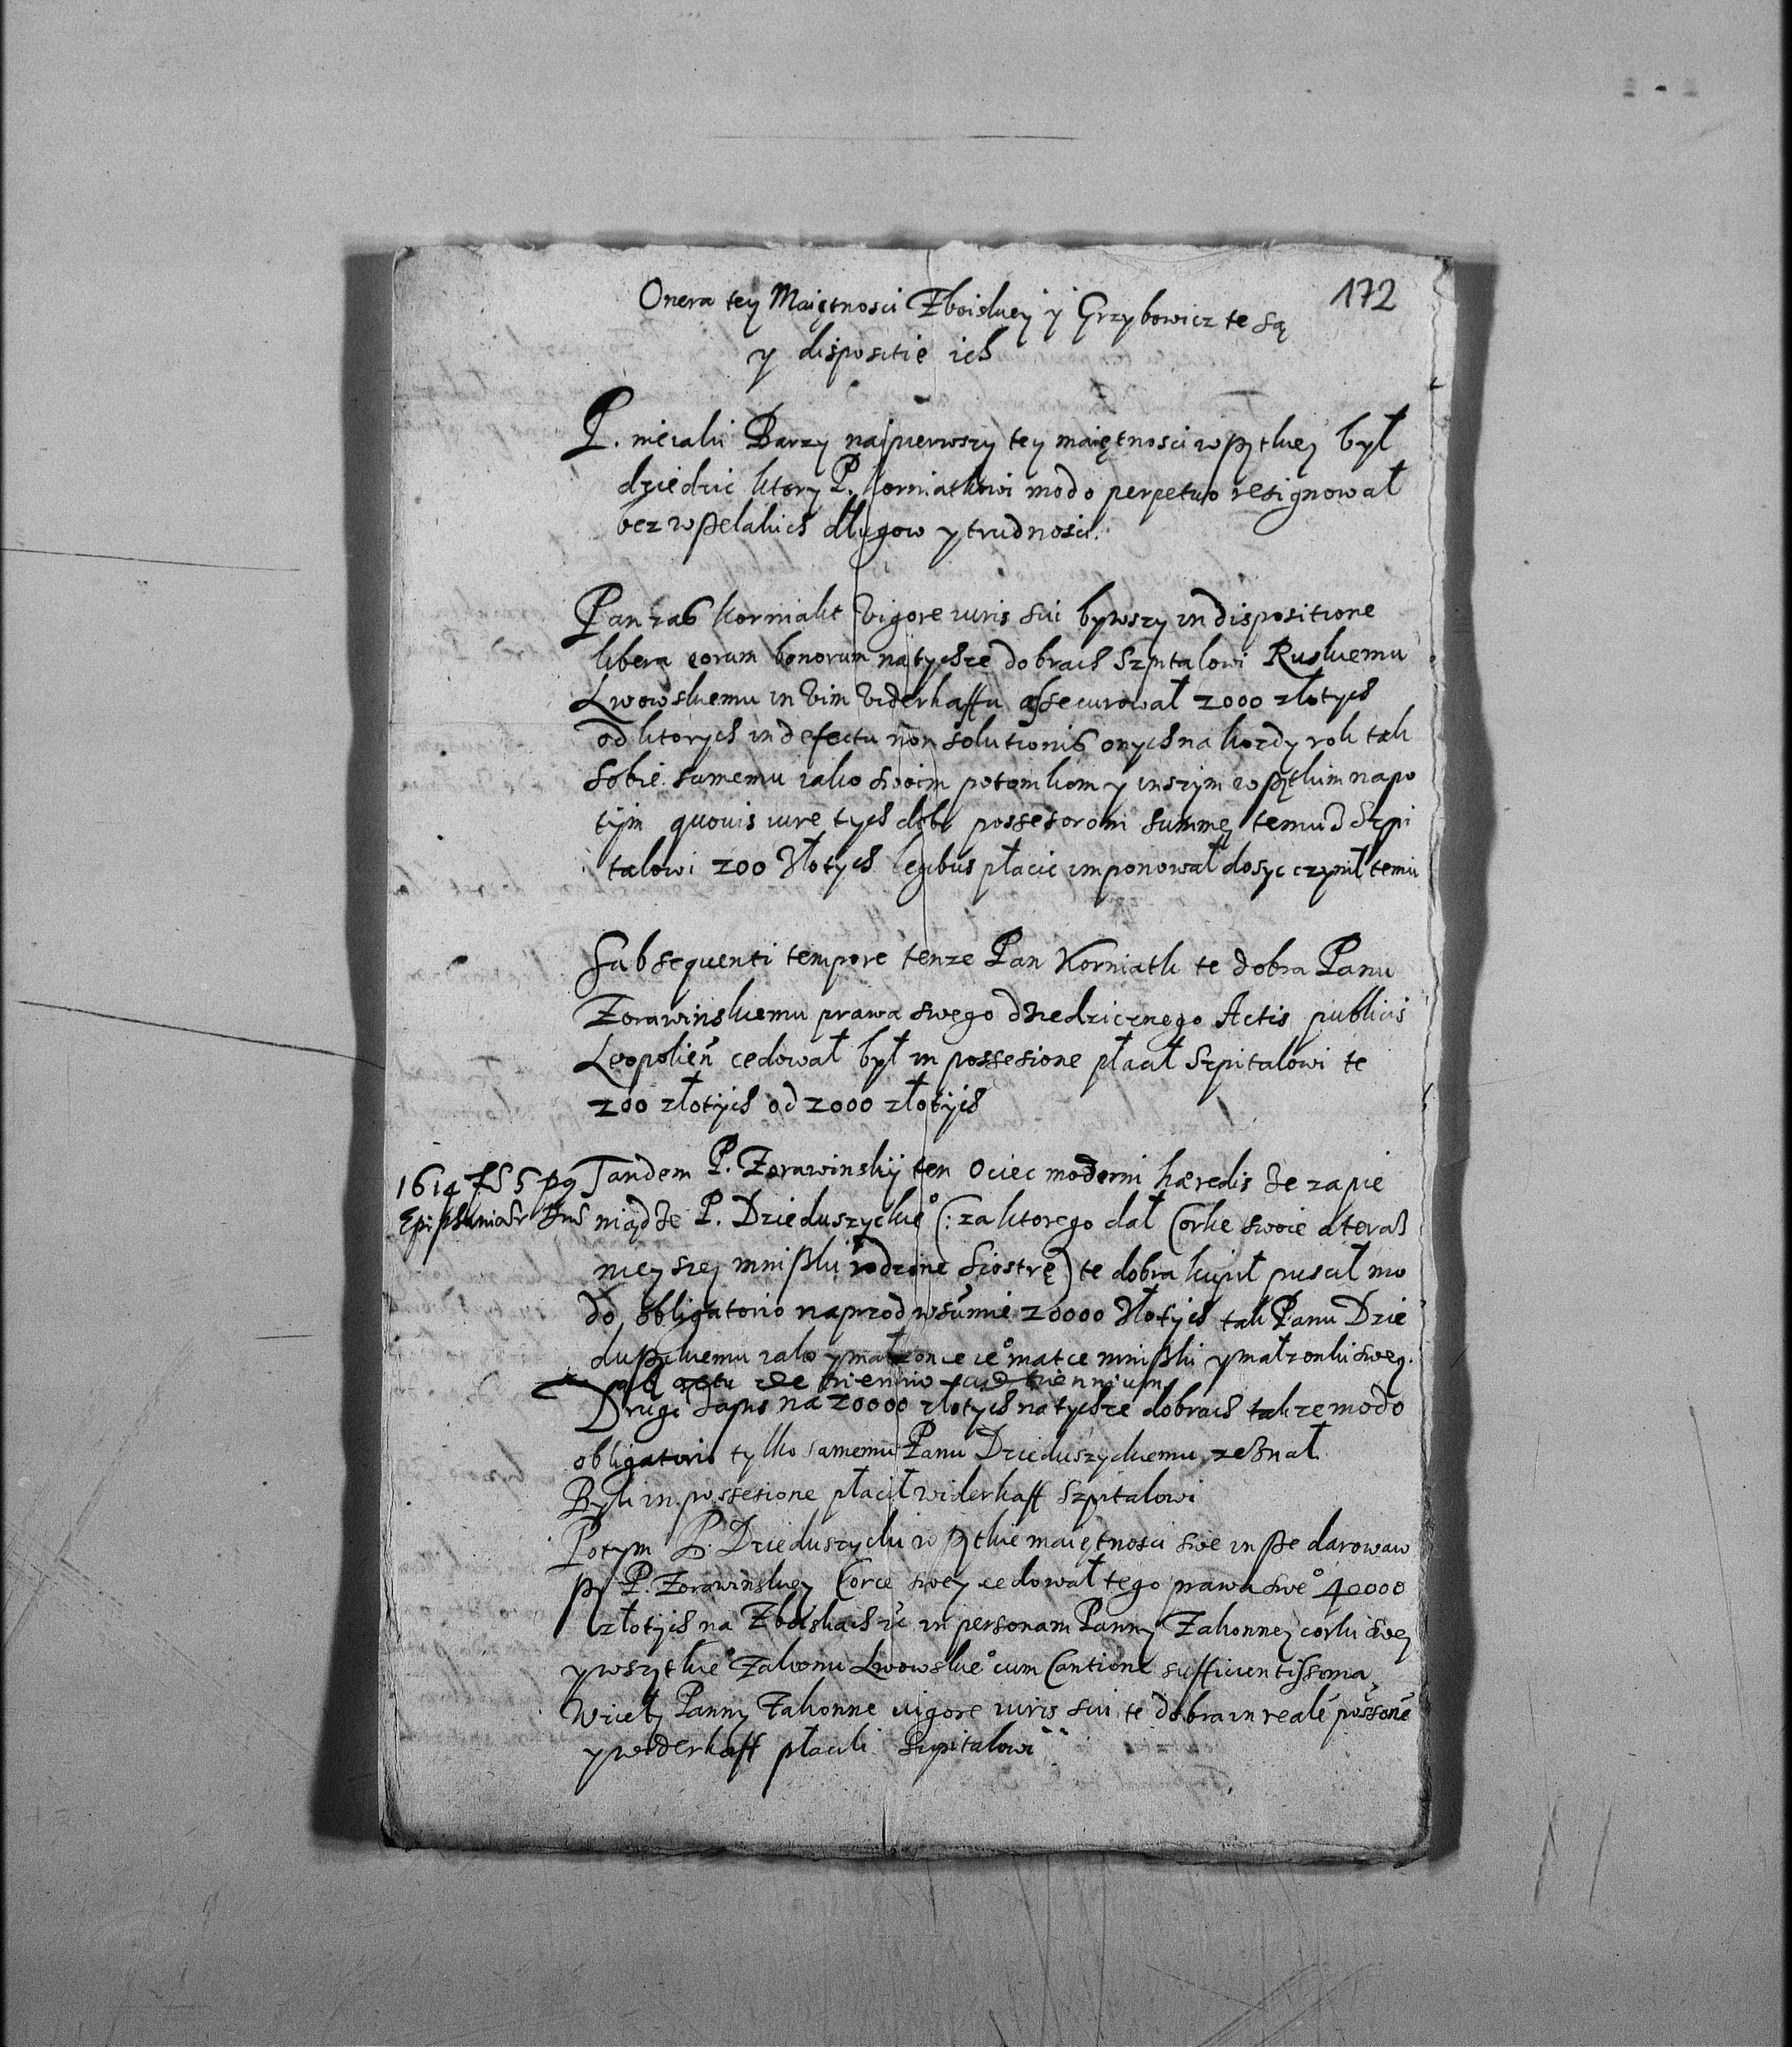 172
Onera tey Maiętnosci Zboiskiey y Grzybowicz te są
y dispositie ich
P. nieiaki Barzy naipierwszy tey maiętnosci wszytkiey był
dziedzic ktory P. Korniaktowi modo perpetuo resignował
bez wszelakich długow y trudnosci.
Pan zas Korniakt vigore iuris sui bywszy in dispositione
libera eorum bonorum na tychze dobrach Szpitalowi Ruskiemu
Lwowskiemu in vim viderkaffu assecurował 2000 złotych
od ktorych in defectu non solutionis onych na kozdy rok tak
sobie samemu iako swoim potomkom y inszym wszytkim napo
tym quovis iure tych dobr possesorom summę temuz Szpi
talowi 200 złotych legibus płacic imponował dosyc czynił temu
Subsequenti tempore tenze Pan Korniakt te dobra Panu
Zorawinskiemu prawa swego dziedzicznego Actis publicis
Leopolien̄ cedował był in possesione płacił Szpitalowi te
200 złotych od 2000 złotych
1614 fs 5 pq Tandem P. Zorawinskij ten ociec moderni hæredis ze za pie
Epiphaniar niądze P. Dzieduszyckie° (: za ktorego dał Corke swoie a teraß
nieyszey mnißki rodzone siostrę) te dobra kupił puscił mo
do obligatorio naprzod w summie 20000 złotych tak Panu Dzie
dußyckiemu iako y małzonce ie° matce mnißki y małzonki sweg.
ab actu de triennio ad triennium
Drugi zapis na 20000 złotych na tychze dobrach takze modo
obligatorio tylko samemu Panu Dzieduszyckiemu zeznał
Byli in possesione płacił widerkaff Szpitalowi
Potym P. Dzieduszycki wszytkie maiętnosci swe insze darowaw
szy P. Zorawinskiey Corce swey cedował tego prawa swe° 40000
złotych na Zboiskach in personam Panny Zakonney corki swey
y wszytkie° Zakonu Lwowskie° cum Cautione sufficientissima
Wzięły Panny Zakonne vigore iuris sui te dobra in realē possonē
y widerkaff płacili Szpitalowi